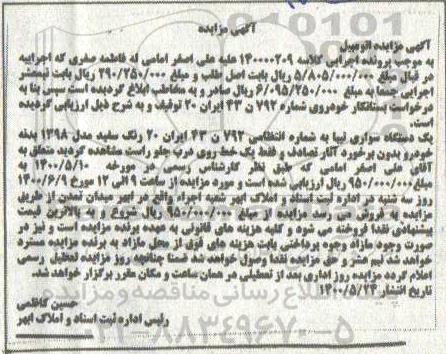 آگهی مزایده
آگهی مزایده اتومبیل
به موجب پرونده اجرایی کلاسه ۱۴۰۰۰۰۲۰۹ علیه علی اصغر امامی له فاطمه صفری که اجراییه
در قبال مبلغ ۵/۸۰۵/۰۰۰/۰۰۰ ریال بابت اصل طلب و مبلغ ۲۹۰/۲۵۰/۰۰۰ ریال بابت نیمعشر
اجرایی جمعا به مبلغ ۶/۰۹۵/۲۵۰/۰۰۰ ریال صادر و به مخاطب ابلاغ گردیده است سپس بنا به
درخواست بستانکار خودروی شماره ۷۹۲ ن ۴۳ ایران ۲۰ توقیف و به شرح ذیل ارزیابی گردیده
است.
یک دستگاه سواری تیبا به شماره انتظامی ۷۹۲ ن ۴۳ ایران ۲۰ رنگ سفید مدل ۱۳۹۸ بدنه
خودرو بدون برخورد آثار تصادف و فقط یک خط روی درب جلو راست مشاهده گردید متعلق به
آقای علی اصغر امامی که طبق نظر کارشناس رسمی در مورخه ۱۴۰۰/۵/۱۰ به
مبلغ ۹۵۰/۰۰۰/۰۰۰ ریال ارزیابی شده است و مورد مزایده از ساعت ۹ الی ۱۲ مورخ ۱۴۰۰/۶/۹
روز سه شنبه در اداره ثبت اسناد و املاک ابهر شعبه اجراء واقع در ابهر میدان تمدن از طریق
مزایده به فروش می رسد مزایده از مبلغ ۹۵۰/۰۰۰/۰۰۰ ریال شروع و به بالاترین قیمت
پیشنهادی نقدا فروخته می شود و کلیه هزینه های قانونی به عهده برنده مزایده است و نیز در
صورت وجود مازاد وجوه پرداختی بابت هزینه های فوق از محل مازاد به برنده مزایده مسترد
خواهد شد نیم عشر و حق مزایده نقدا وصول خواهد شد ضمنا چنانچه روز مزایده تعطیل رسمی
اعلام گردد مزایده روز اداری بعد از تعطیلی در همان ساعت و مکان مقرر برگزار خواهد شد.
تاریخ انتشار ۱۴۰۰/۵/۲۴
حسین کاظمی
رئیس اداره ثبت اسناد و املاک ابهر
۰۲۱-۸۸۳۴۹۶۷۰-۵